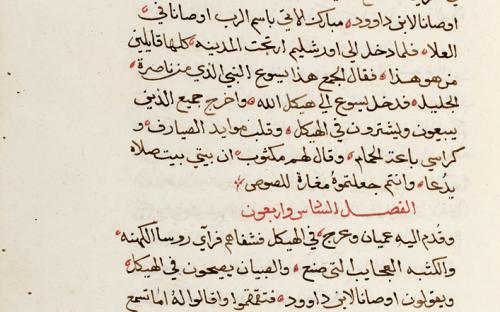 اوصانا لابن داوود مبارك الاتي باسم الرب اوصانا في
العلا فلما دخل الى اورشليم ارتجت المدينه كلها قايلين
من هو هذا فقال الجمع هذا يسوع النبي الذي من ناصرة
الجليل فدخل يسوع الى هيكل الله واخرج جميع الذين
يبيعون ويشترون في الهيكل وقلب موايد الصيارف و
كراسي باعة الحمام وقال لهم مكتوب ان بيتي بيت صلاه
يدعا وانتم جعلتموهُ مغارة للصوص
الفصل السادس واربعون
وقُدم اليه عميان وعرج في الهيكل فشفاهم فراي روسا الكهنه
والكتبه العجايب التي صنع والصبيان يصيحون في الهيكل
ويقولون اوصانا لابن داوود فتقمقموا وقالوا له اما تسمع